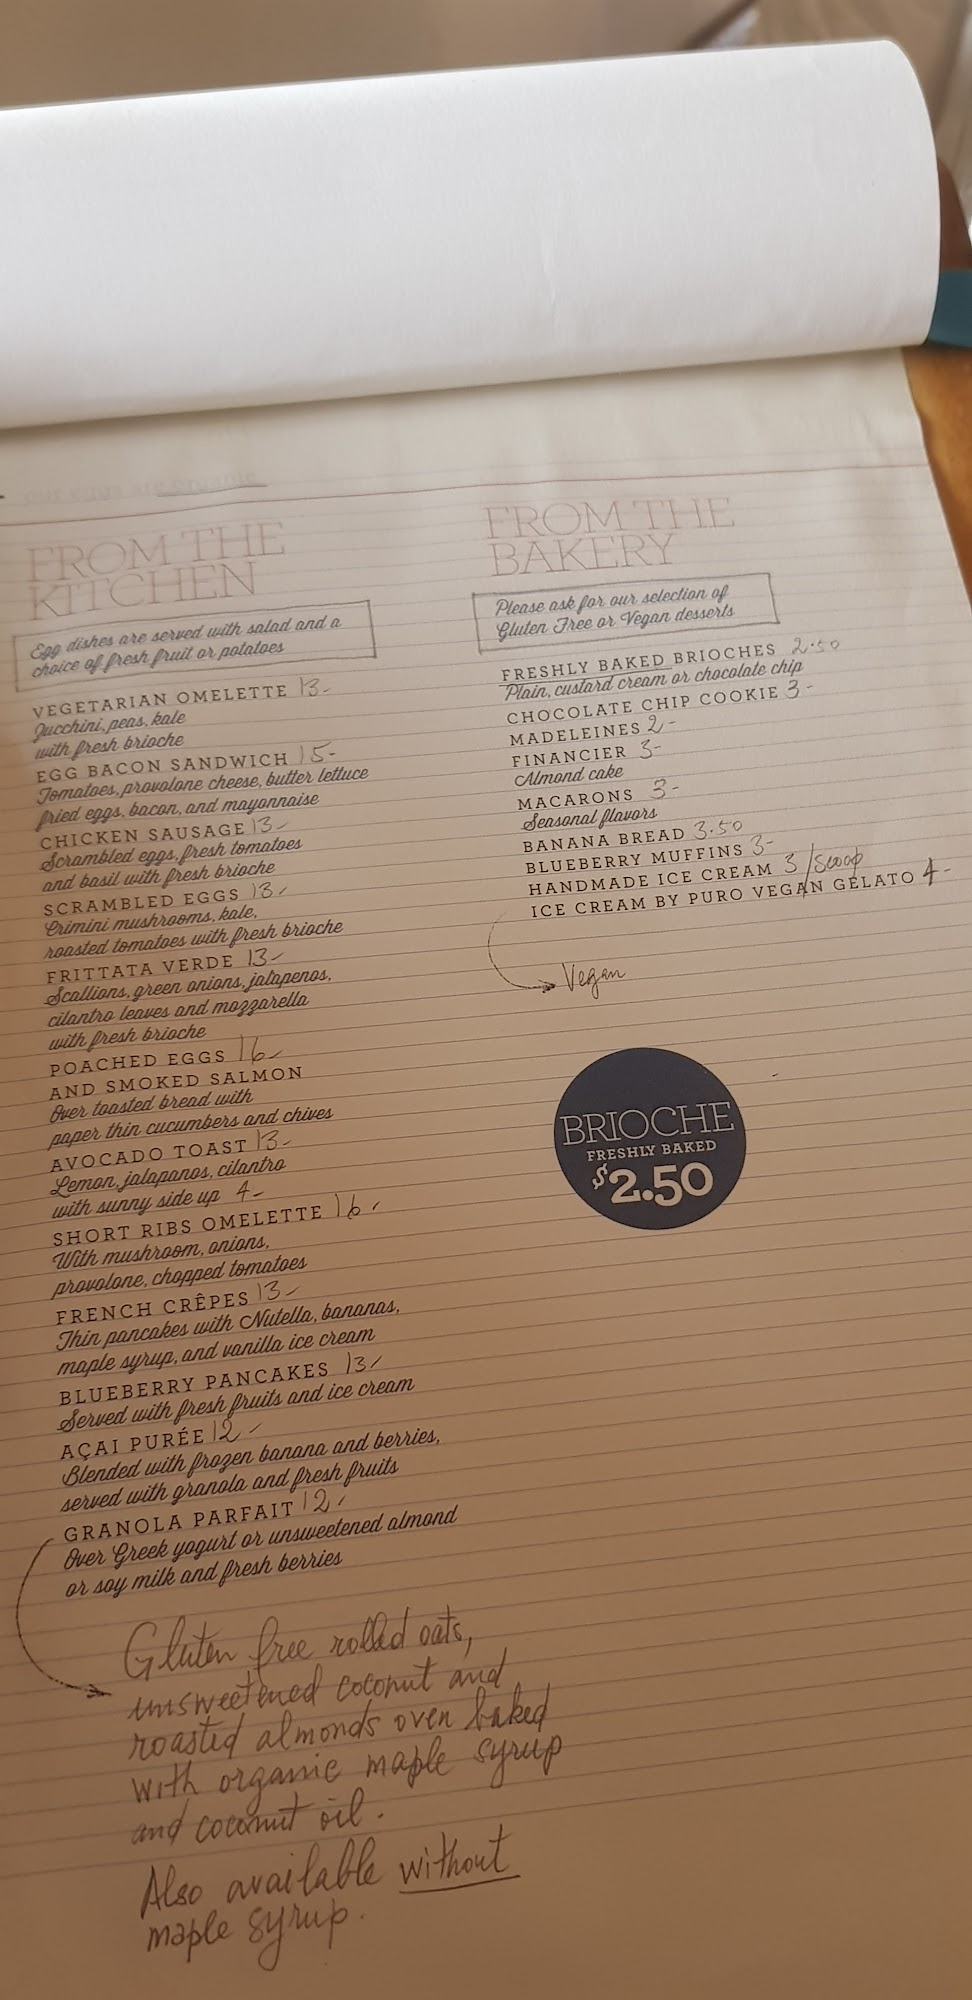 our eggs are organic
FROM THE
KITCHEN
Egg dishes are served with salad and a
choice of fresh fruit or potatoes
VEGETARIAN OMELETTE 13-
Zucchini, peas, kale
with fresh brioche
EGG BACON SANDWICH 15-
Tomatoes, provolone cheese, butter lettuce
fried eggs, bacon, and mayonnaise
CHICKEN SAUSAGE 13-
Scrambled eggs, fresh tomatoes
and basil with fresh brioche
SCRAMBLED EGGS 13-
Crimini mushrooms, kale,
roasted tomatoes with fresh brioche
FRITTATA VERDE 13-
Scallions, green onions, jalapenos,
cilantro leaves and mozzarella
with fresh brioche
POACHED EGGS 16-
AND SMOKED SALMON
Over toasted bread with
paper thin cucumbers and chives
AVOCADO TOAST 13-
Lemon, jalapanos, cilantro
with sunny side up 4-
SHORT RIBS OMELETTE 16-
With mushroom, onions,
provolone, chopped tomatoes
FRENCH CRÊPES 13-
Thin pancakes with Nutella, bananas,
maple syrup, and vanilla ice cream
BLUEBERRY PANCAKES 13-
Served with fresh fruits and ice cream
AÇAI PURÉE 12-
Blended with frozen banana and berries,
served with granola and fresh fruits
GRANOLA PARFAIT 12-
Over Greek yogurt or unsweetened almond
or soy milk and fresh berries
Gluten free rolled oats,
unsweetened coconut and
roasted almonds oven baked
with organic maple syrup
and coconut oil.
Also available without
maple syrup.
FROM THE
BAKERY
Please ask for our selection of
Gluten Free or Vegan desserts
FRESHLY BAKED BRIOCHES 2.50
Plain, custard cream or chocolate chip
CHOCOLATE CHIP COOKIE 3-
MADELEINES 2-
FINANCIER 3-
Almond cake
MACARONS 3-
Seasonal flavors
BANANA BREAD 3.50
BLUEBERRY MUFFINS 3-
HANDMADE ICE CREAM 3/scoop
ICE CREAM BY PURO VEGAN GELATO 4-
Vegan
BRIOCHE
FRESHLY BAKED
$2.50